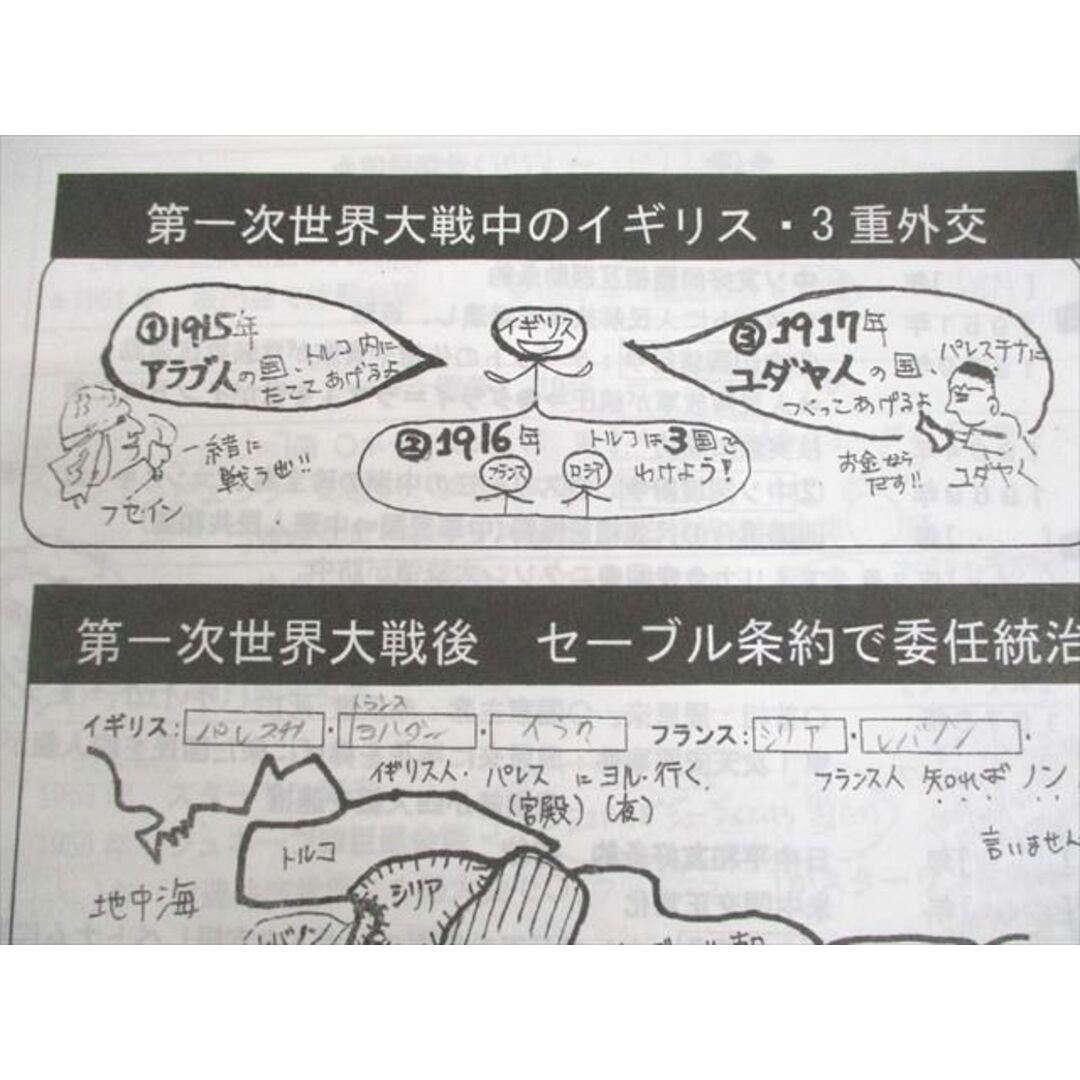 第一次世界大戦中のイギリス・3重外交
①1915年
アラブ人の国、トルコ内に
たてこあげるよ
イギリス
③1917年
ユダヤ人の国、パレスチナに
つくっこあげるよ
②1916年 トルコは3国で
わけよう!
フランス
ロシア
一緒に
戦うぜ!!
フセイン
お金なら
だす!!
ユダヤ人
第一次世界大戦後 セーブル条約で委任統治
イギリス:パレスチナ・トランスヨルダン・イラク フランス:シリア・レバノン・
イギリス人・パレス に ヨル・行く。
(宮殿)(夜)
フランス人 知れば ノン
言いません
トルコ
シリア
地中海
レバノン